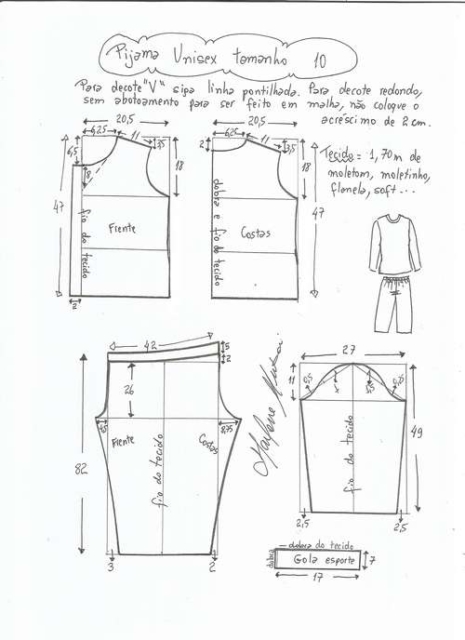 Pijama Unisex tamanho 10
Para decote "V" siga linha pontilhada. Para decote redondo,
sem abotoamento para ser feito em malha, não coloque o
acréscimo de 2 cm.
20,5
6,25
11
3,5
6,5
8
18
47
Frente
fio do tecido
2
20,5
6,25
11
3,5
2
18
47
Costas
dobra e fio do tecido
Tecido = 1,70m de
moletom, moletinho,
flanela, soft...
42
5
2
26
4,5
8,75
Frente
Costas
fio do tecido
82
3
2
27
11
0,5
1
1,5
0,75
fio do tecido
49
2,5
2,5
dobra do tecido
dobra
Gola esporte
7
17